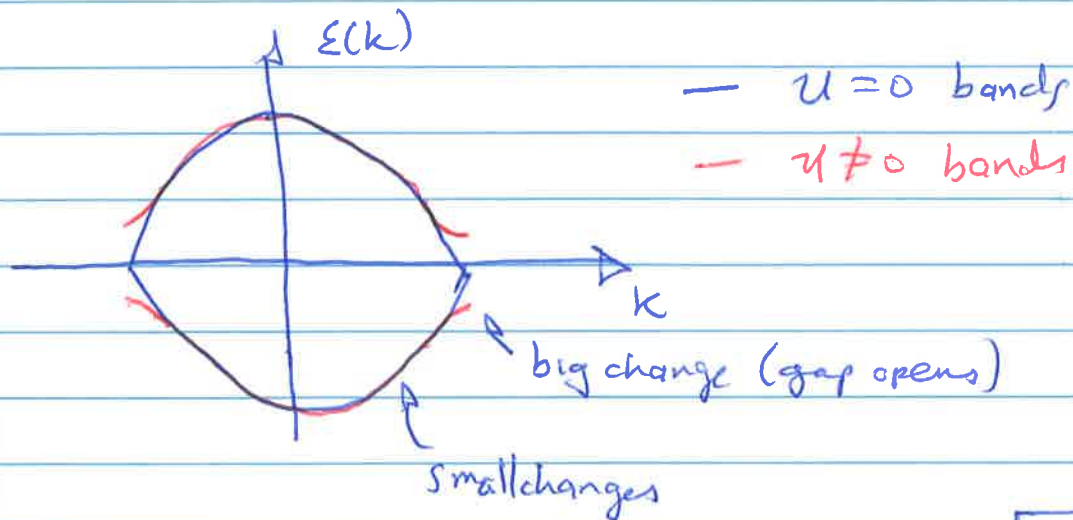 ε(k)
— u = 0 bands
— u ≠ 0 bands
k
big change (gap opens)
small changes